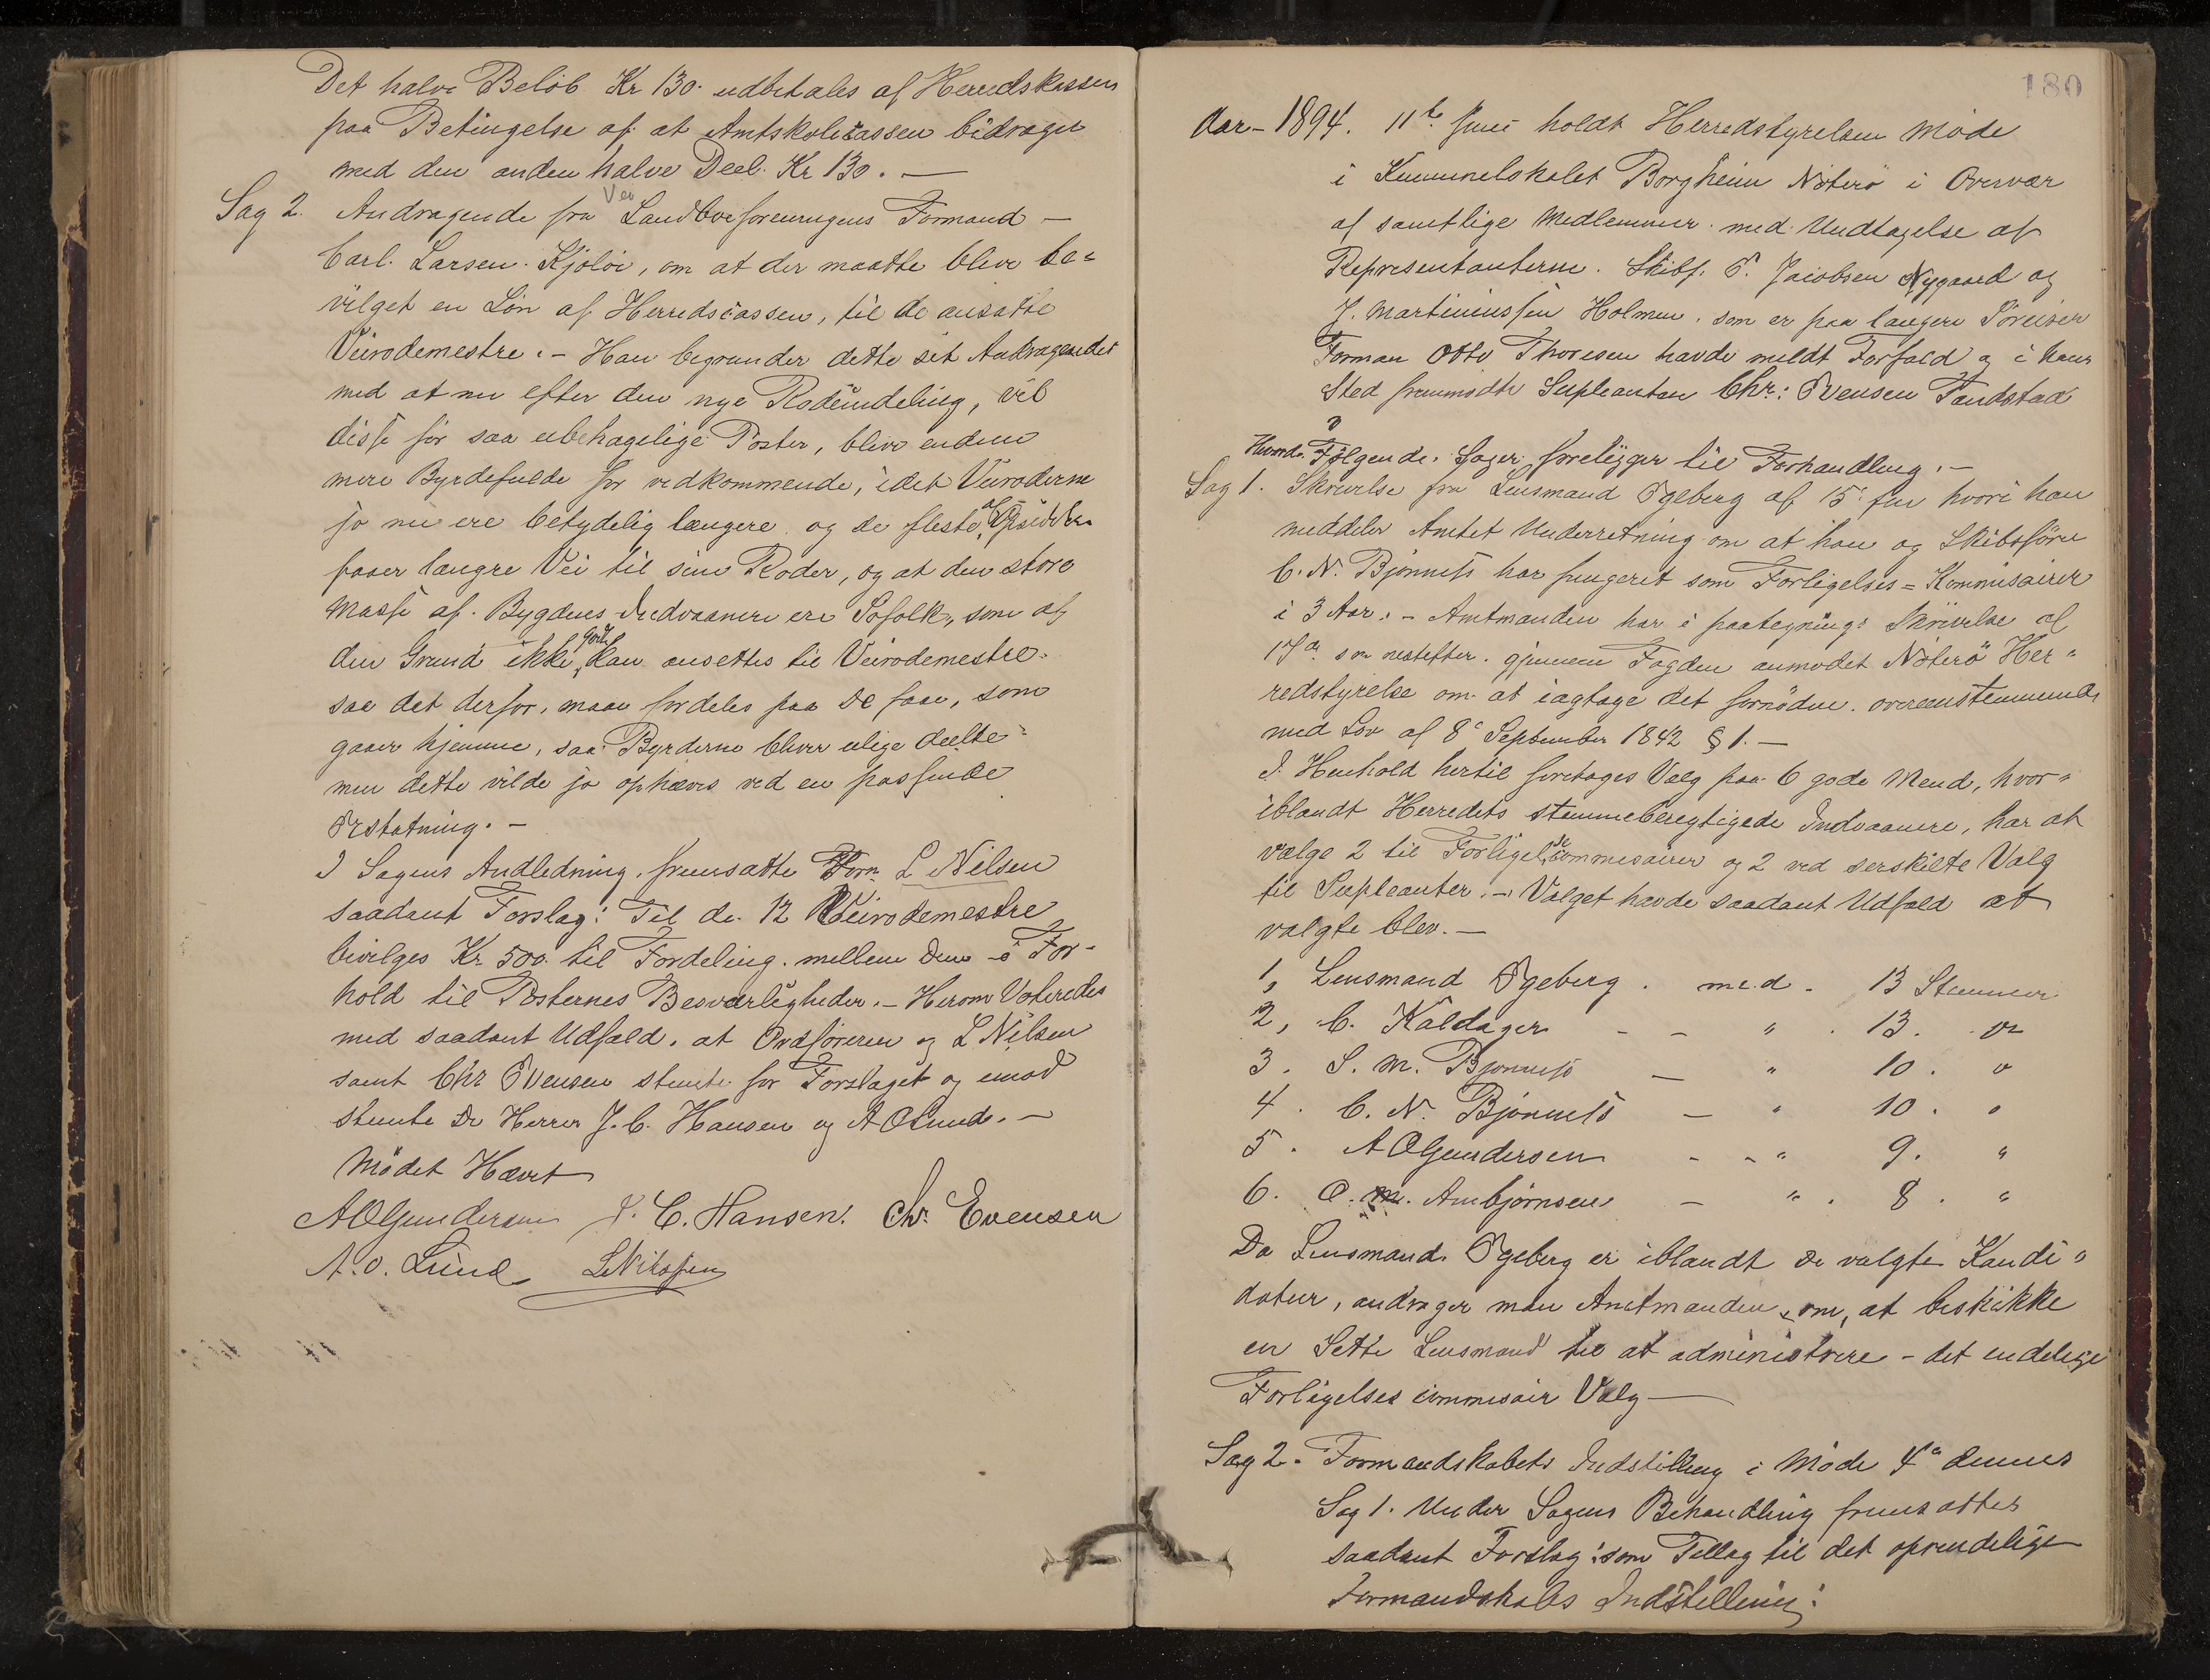 Det halve Beløb Kr 130. udbetales af Herredskassen
paa Betingelse af at Amtskolecassen bidrager
med den anden halve Deel. Kr 130. —
Sag 2. Andragende fra Landboforeningens Formand —
Carl. Larsen. Kjøløe, om at der maatte blive be=
vilget en Løn af Herredscassen, til de ansatte
Veirodemestre. – Han begrunder dette sit Andragendet
med at nu efter den nye Rodeindeling, vil
disse før saa ubehagelige Poster, blive endnu
mere Byrdefulde for vedkommende, idet Veiroderne
jo nu ere betydelig længere og de fleste af
faaer længre Vei til sine Roder, og at den store
Masse af Bygdens Indvaanere ere Søfolk, som af
den Grund ikke godt kan ansettes til Veirodemestre.
saa det derfor, maa fordeles paa De faae, som
gaaer hjemme, saa Byrderne bliver ulige deelte
men dette vilde jo ophæves ved en passende
Erstatning. –
I Sagens Andledning, fremsatte Form. L Nilsen
saadant Forslag: Til de 12 Veirodemestre
bevilges Kr 500. til Fordeling. mellem Dem i For-
hold til Posternes Besværligheder. – Herom Voteredes
med saadant Udfald, at Ordføreren og L Nilsen
samt Chr Evensen stemte for Forslaget og imod
stemte De Herrer J. C. Hansen og A O Lund. –
Mødet Hævet
A O Gundersen J. C. Hansen. Chr. Evensen
A. O. Lund L Nilssen
180
Aar – 1894. 11te Juni holdt Herredstyrelsen Møde
i Kommunelokalet Borgheim Nøterø i Overvær
af samtlige Medlemmer med Undtagelse af
Representanterne. Skibsf. P. Jacobsen Nygaard og
J. Martiniussen Holmen. som er paa længere Søreiser
Forman Otto Thoresen havde meldt Forfald og i hans
Sted fremmødte Supleanten Chr: Evensen Tandstad
Hvorda Følgende. Sager foreligger til Forhandling. –
Sag 1. Skrivelse fra Lensmand Ogeberg af 15. hvori han
meddeler Amtet Underretning om at han og Skibsfører
C. N. Bjønness har fungeret som Forligelses=Kommisairer
i 3 Aar. – Amtmanden har i paategnings Skrivelse af
17de s m nestefter. gjennem Fogden anmodet Nøterø Her=
redstyrelse om at iagtage det fornødne. overeenstemmende
med Lov af 8de September 1842 § 1. —
I. Henhold hertil foretages Valg paa 6 gode Mend, hvor=
iblandt Herredets stemmeberegtigede Indvaanere, har at
vælge 2 til Forligelsecommisairer og 2 ved serskilte Valg
til Supleanter. – Valget havde saadant Udfald at
valgte blev. —
1, Lensmand Ogeberg. med. 13 Stemmer
2, C. Kaldager - - " . 13. "
3. S. M. Bjønness — " 10. "
4. C. N. Bjønness — " 10. "
5. A O Gundersen - - " 9. "
6. O. M. Ambjørnsen — " . 8. "
Da Lensmand Ogeberg er iblandt De valgte Kandi=
dater, andrager man Amtmanden om, at beskikke
en Sette Lensmand til at administrere – det endelige
Forligelses commisair Valg —
Sag 2. Formandskabets Indstilling i Møde 4de dennes
Sag 1. Under Sagens Behandling fremsattes
saadant Forslag: som Tillæg til det oprindelige
Formandskabs Indstilling: